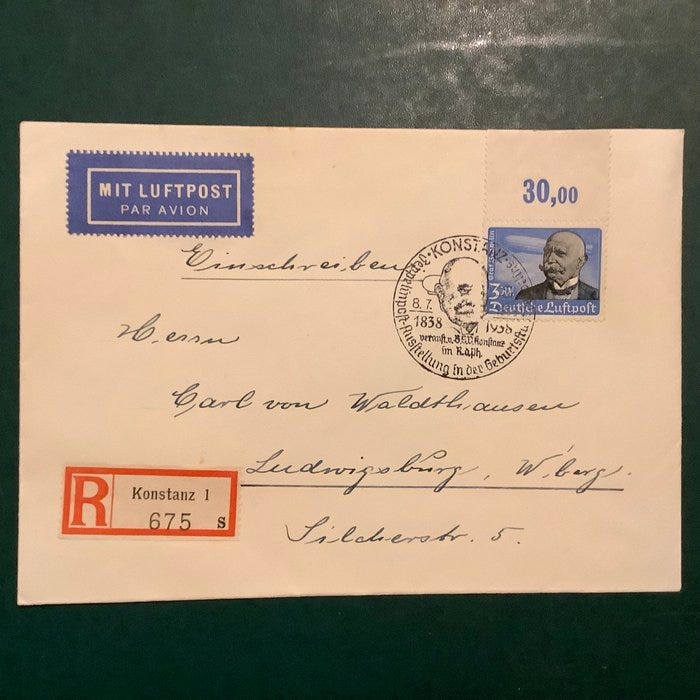 MIT LUFTPOST
PAR AVION
30,00
Einschreiben
3 RM
Deutsche Luftpost
KONSTANZ
Zeppelinpost-Ausstellung in der Geburtsst
8.7.
1838 1938
veranst. v. Konstanz
im KdPh.
Herrn
Carl von Waldthausen
Ludwigsburg, W'berg.
Silcherstr. 5.
R
Konstanz 1
675 s